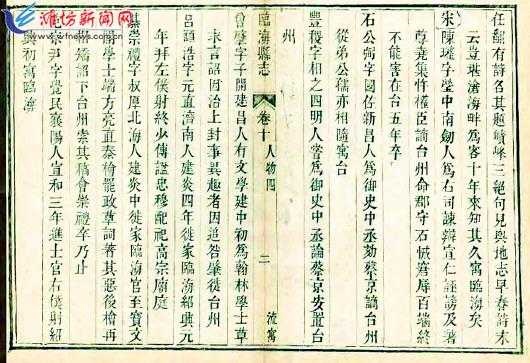 潍坊新闻网
任翻有詩名其題幘峰三絕句見輿地志早春詩末
云豈堪滄海畔為客十年來知其久寓臨海矣
宋陳瓘字瑩中南劍人為右司諫辯宣仁誣謗及著
尊堯集忤權臣謫台州命郡守石悈窘辱百端終
不能害在台五年卒
石公弼字國佐新昌人為御史中丞劾蔡京謫台州
從弟公孺亦相隨寓台
豐稷字相之四明人嘗為御史中丞論蔡京安置台
州
臨海縣志 卷十 人物四 二 流寓
曾肇字子開建昌人有文學建中初為翰林學士草
求言詔因治上封事異趣者因追咎肇徙台州
呂頤浩字元直濟南人建炎四年徙家臨海紹興元
年拜左僕射終少傅諡忠穆配祀高宗廟庭
綦崇禮字叔厚北海人建炎中徙家臨海官至寶文
閣學士端方亮直秦檜罷政草詞著其惡後檜再
相矯詔下台州索其稿會崇禮卒乃止
宗尹字覺民襄陽人宣和三年進士官右僕射紹
興初寓臨海